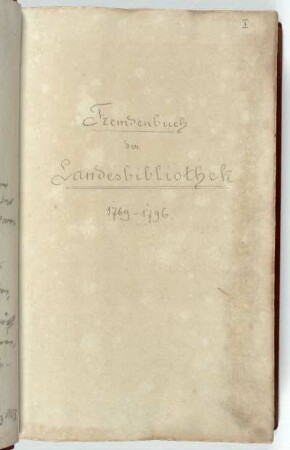 I
Fremdenbuch
der
Landesbibliothek
1769-1796